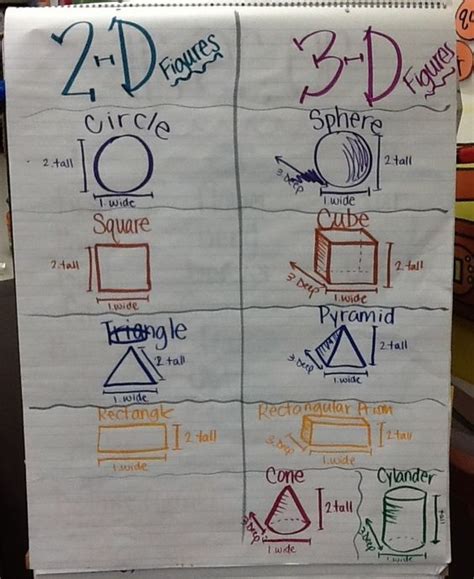 2-D Figures
3-D Figures
Circle
2. tall
1. wide
Sphere
3. Deep
2. tall
1. wide
Square
2. tall
1. wide
Cube
3. Deep
2. tall
1. wide
Triangle
2. tall
1. wide
Pyramid
3. Deep
2. tall
1. wide
Rectangle
2. tall
1. wide
Rectangular
3. Deep
2. tall
1. wide
Cone
2. tall
3. Deep
1. wide
Cylander
tall
3. Deep
1. wide